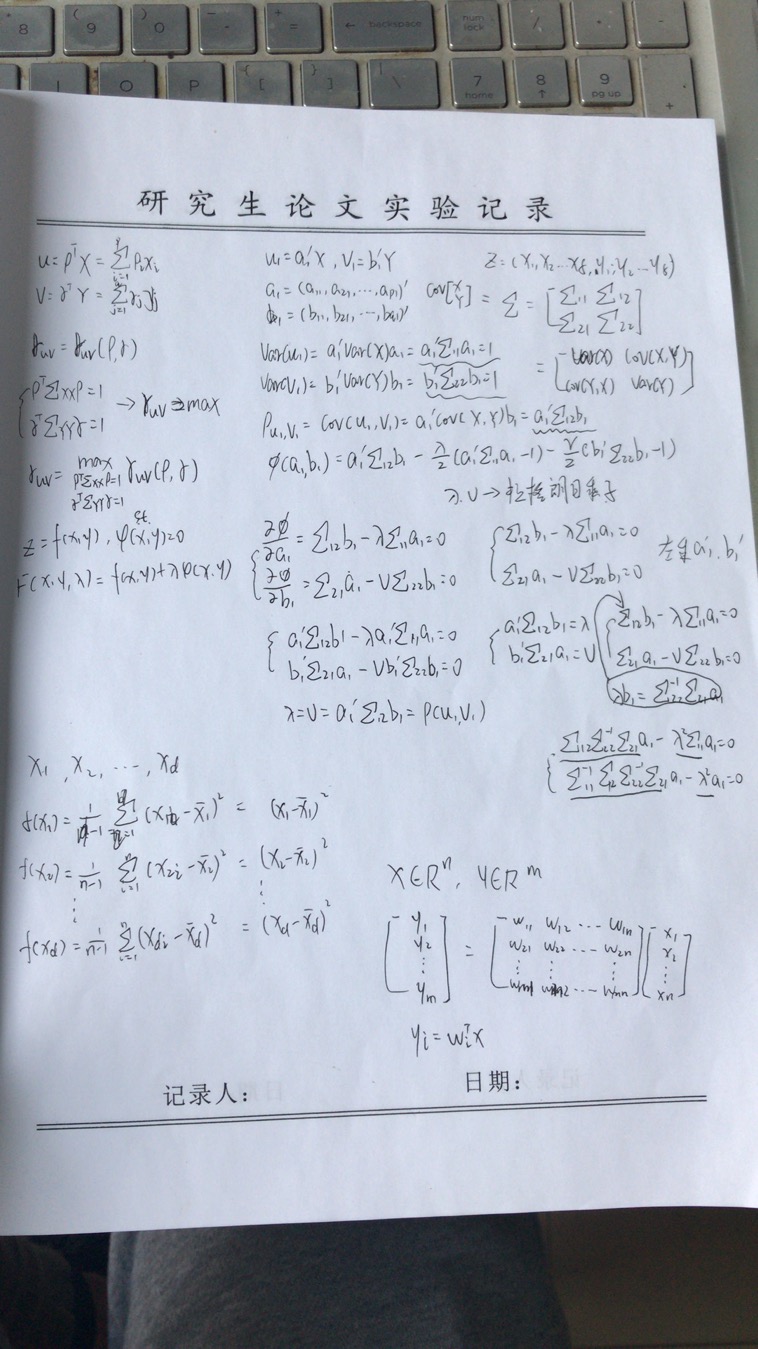 8 ( 9 ) 0 _ - + = ← backspace num lock / * -
O P { [ } ] | \ 7 home 8 ↑ 9 pg up +
研究生论文实验记录
u = ρᵀX = Σᵢ₌₁ ρᵢxᵢ
V = γᵀY = Σⱼ₌₁ γⱼyⱼ
γuv = γuv(ρ,γ)
{ ρᵀΣxxρ=1
γᵀΣYYγ=1 → γuv ⇒ max
γuv = max γuv(ρ,γ)
ρᵀΣxxρ=1
γᵀΣYYγ=1
st.
Z = f(x,y), φ(x,y)=0
F(x,y,λ) = f(x,y)+λφ(x,y)
u₁ = a₁'X , V₁ = b₁'Y
a₁ = (a₁₁, a₂₁, ⋯, aₚ₁)'
b₁ = (b₁₁, b₂₁, ⋯, bq₁)'
Var(u₁) = a₁'Var(X)a₁ = a₁'Σ₁₁a₁ = 1
Var(V₁) = b₁'Var(Y)b₁ = b₁'Σ₂₂b₁ = 1
ρu₁,v₁ = Cov(u₁,V₁) = a₁'Cov(X,Y)b₁ = a₁'Σ₁₂b₁
φ(a₁,b₁) = a₁'Σ₁₂b₁ - λ/2(a₁'Σ₁₁a₁-1) - ν/2(b₁'Σ₂₂b₁-1)
λ.ν → 拉格朗日乘子
Cov[X Y] = Σ = [Σ₁₁ Σ₁₂
Σ₂₁ Σ₂₂]
= [Var(X) Cov(X,Y)
Cov(Y,X) Var(Y)]
{ ∂φ/∂a₁ = Σ₁₂b₁ - λΣ₁₁a₁ = 0
∂φ/∂b₁ = Σ₂₁a₁ - νΣ₂₂b₁ = 0
{ Σ₁₂b₁ - λΣ₁₁a₁ = 0
Σ₂₁a₁ - νΣ₂₂b₁ = 0
左乘a₁'. b₁'
{ a₁'Σ₁₂b₁ - λa₁'Σ₁₁a₁ = 0
b₁'Σ₂₁a₁ - νb₁'Σ₂₂b₁ = 0
{ a₁'Σ₁₂b₁ = λ
b₁'Σ₂₁a₁ = ν
{ Σ₁₂b₁ - λΣ₁₁a₁ = 0
Σ₂₁a₁ - νΣ₂₂b₁ = 0
λb₁ = Σ₂₂⁻¹Σ₂₁a₁
λ = ν = a₁'Σ₁₂b₁ = ρ(u₁,V₁)
{ Σ₁₂Σ₂₂⁻¹Σ₂₁a₁ - λ²Σ₁₁a₁ = 0
Σ₁₁⁻¹Σ₁₂Σ₂₂⁻¹Σ₂₁a₁ - λ²a₁ = 0
X₁ , X₂ , ⋯ , Xd
f(x₁) = 1/(n-1) Σᵢ₌₁ (x₁ᵢ - x̄₁)² = (x₁-x̄₁)²
f(x₂) = 1/(n-1) Σᵢ₌₁ⁿ (x₂ᵢ - x̄₂)² = (x₂-x̄₂)²
⋮ ⋮
f(xd) = 1/(n-1) Σᵢ₌₁ⁿ (xdᵢ - x̄d)² = (xd-x̄d)²
X∈Rⁿ, Y∈Rᵐ
[y₁ y₂ ⋮ yₘ] = [w₁₁ w₁₂ ⋯ w₁ₙ
w₂₁ w₂₂ ⋯ w₂ₙ
⋮ ⋮ ⋮
wₘ₁ wₘ₂ ⋯ wₘₙ] [x₁ x₂ ⋮ xₙ]
yᵢ = wᵢᵀx
记录人： 日期：